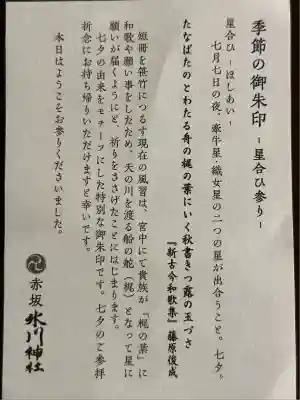 季節の御朱印 -星合ひ参り-
星合ひ -ほしあい-
七月七日の夜、牽牛星・織女星の二つの星が出合うこと。七夕。
たなばたのとわたる舟の梶の葉にいく秋書きつ露の玉づさ
『新古今和歌集』藤原俊成
短冊を笹竹につるす現在の風習は、宮中にて貴族が『梶の葉』に
和歌や願い事をしたため、天の川を渡る船の舵（梶）となって星に
願いが届くようにと、祈りをささげたことにはじまります。
七夕の由来をモチーフにした特別な御朱印です。七夕のご参拝
祈念にお持ち帰りいただけますと幸いです。
本日はようこそお参りくださいました。
赤坂 氷川神社